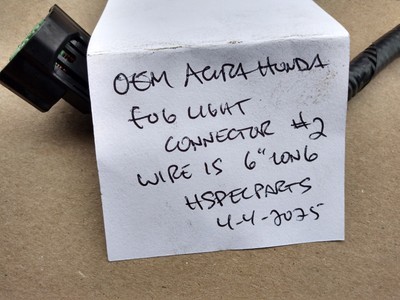 OEM ACURA HONDA
FOG LIGHT
CONNECTOR #2
WIRE IS 6" LONG
HSPECPARTS
4-4-2025